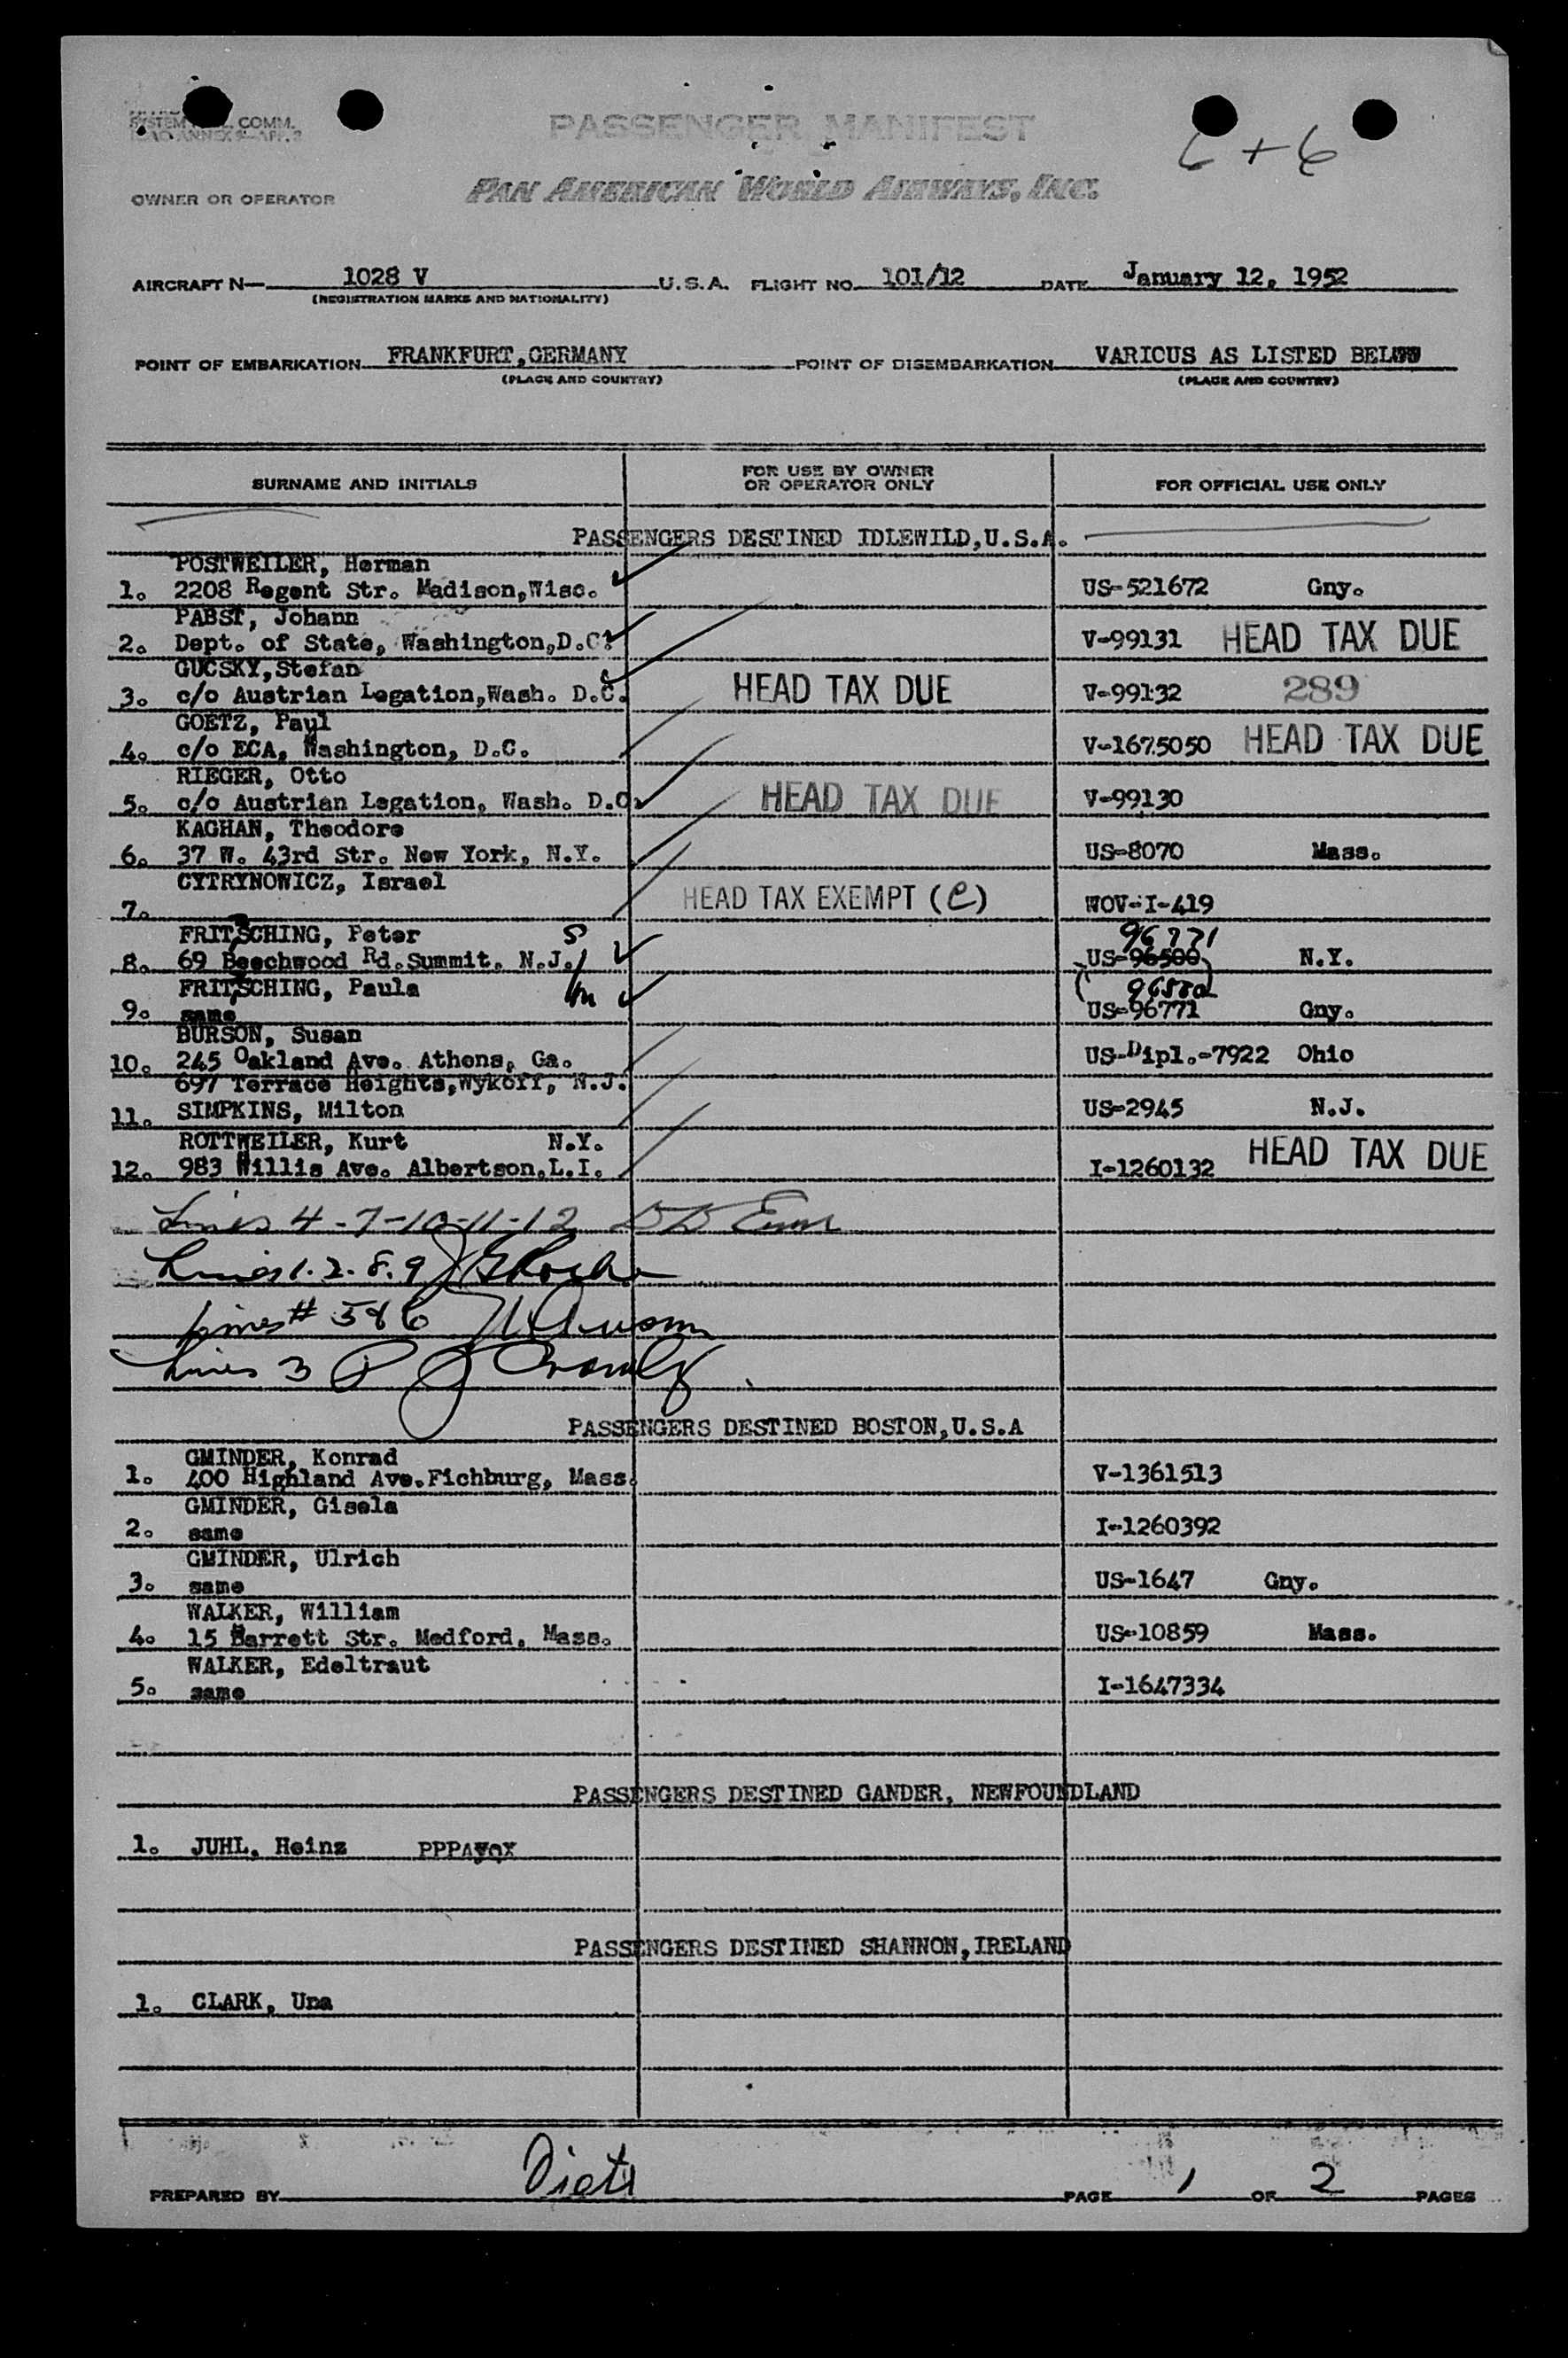 SYSTEM COMM.
PASSENGER MANIFEST
6 + 6
OWNER OR OPERATOR
PAN AMERICAN WORLD AIRWAYS, INC.
AIRCRAFT N— 1028 V U.S.A. FLIGHT NO. 101/12 DATE January 12, 1952
(REGISTRATION MARKS AND NATIONALITY)
POINT OF EMBARKATION FRANKFURT,GERMANY POINT OF DISEMBARKATION VARIOUS AS LISTED BELOW
(PLACE AND COUNTRY) (PLACE AND COUNTRY)
SURNAME AND INITIALS FOR USE BY OWNER OR OPERATOR ONLY FOR OFFICIAL USE ONLY
PASSENGERS DESTINED IDLEWILD,U.S.A.
POSTWEILER, Herman
1. 2208 Regent Str. Madison,Wisc. US-521672 Gny.
PABST, Johann
2. Dept. of State, Washington,D.C. V-99131 HEAD TAX DUE
GUCSKY,Stefan
3. c/o Austrian Legation,Wash. D.C. HEAD TAX DUE V-99132 289
GOETZ, Paul
4. c/o ECA, Washington, D.C. V-1675050 HEAD TAX DUE
RIEGER, Otto
5. c/o Austrian Legation, Wash. D.C. HEAD TAX DUE V-99130
KAGHAN, Theodore
6. 37 W. 43rd Str. New York, N.Y. US-8070 Mass.
CYTRYNOWICZ, Israel
7. HEAD TAX EXEMPT (e) WOV-I-419
FRITSCHING, Peter S 96771
8. 69 Beechwood Rd.Summit, N.J. US-96500 N.Y.
FRITSCHING, Paula m
9. same US-96771 Gny.
BURSON, Susan
10. 245 Oakland Ave. Athens, Ga. US-Dipl.-7922 Ohio
697 Terrace Heights,Wykoff, N.J.
11. SIMPKINS, Milton US-2945 N.J.
ROTTWEILER, Kurt N.Y.
12. 983 Willis Ave. Albertson,L.I. I-1260132 HEAD TAX DUE
Lines 4-7-10-11-12
Lines 1.2.8.9
Lines # 5 & 6
Lines 3
PASSENGERS DESTINED BOSTON,U.S.A
GMINDER, Konrad
1. 400 Highland Ave.Fichburg, Mass. V-1361513
GMINDER, Gisela
2. same I-1260392
GMINDER, Ulrich
3. same US-1647 Gny.
WALKER, William
4. 15 Barrett Str. Medford, Mass. US-10859 Mass.
WALKER, Edeltraut
5. same I-1647334
PASSENGERS DESTINED GANDER, NEWFOUNDLAND
1. JUHL, Heinz
PASSENGERS DESTINED SHANNON,IRELAND
1. CLARK, Una
PREPARED BY PAGE 1 OF 2 PAGES